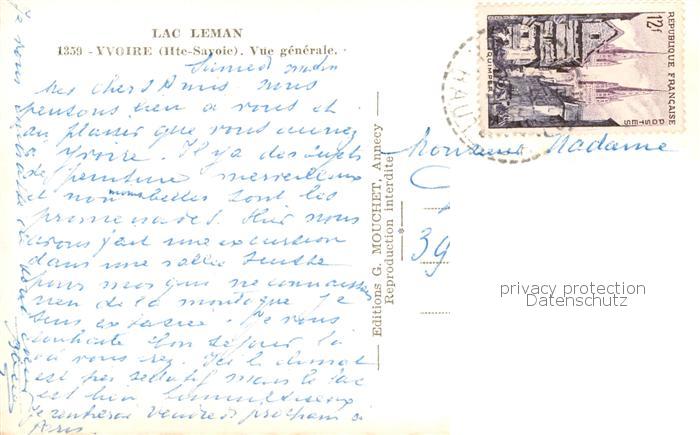 LAC LEMAN
1359 - YVOIRE (Hte-Savoie). Vue générale.
Samedi matin
Mes chers Amis nous
pensons bien à vous et
au plaisir que vous aurez
à Yvoire. Il y a des sujets
de peinture merveilleux
et non moins belles sont les
promenades. Hier nous
avons fait une excursion
dans une vallée
pour moi qui ne connaissais
rien de la montagne je
suis extasiée. Je vous
souhaite bon séjour là
où vous irez. Ici le climat
est très sédatif mais le lac
est bien
Je rentrerai vendredi prochain à
Paris
Je vous
Editions G. MOUCHET, Annecy
Reproduction interdite
Monsieur Madame
39
12F
REPUBLIQUE FRANÇAISE
POSTES
QUIMPER
HAUTE
privacy protection
Datenschutz